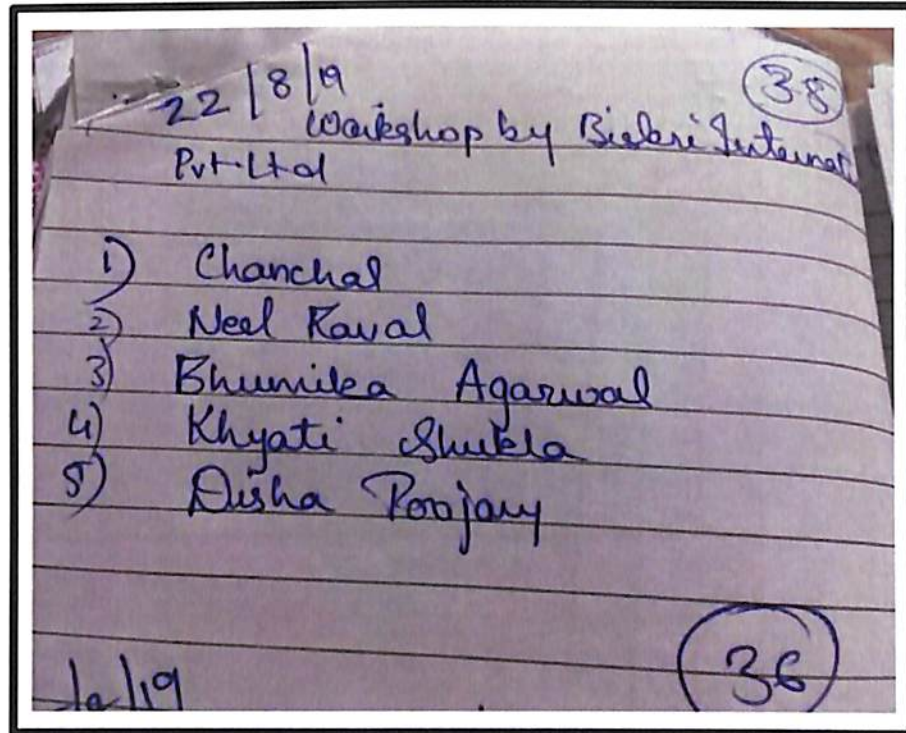 38
22/8/19
Workshop by Bisleri Internat
Pvt. Ltd
1) Chanchal
2) Neel Raval
3) Bhumika Agarwal
4) Khyati Shukla
5) Disha Poojary
36
/19